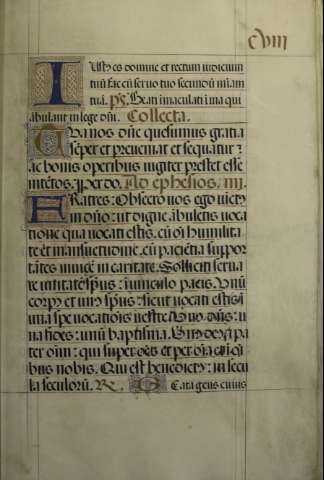 cviii
IUstus es domine et rectum iudicium
tuũ: fac cũ seruo tuo secundũ miam
tuã. ps. Beati immaculati i uia qui
abulant in lege dni. Collecta.
TUa nos dñe quesumus gratia
sẽper et preueniat et sequatur: &
ac bonis operibus iugiter prestet esse
intẽtos. per do. Ad ephesios. iiij.
FRatres: Obsecro uos ego uictꝰ
in dño: ut digne ãbuletis uoca
tione qua uocati estis, cũ oĩ humilita
te et mansuetudine, cũ paciẽtia suppor
tãtes inuicẽ in caritate. Solliciti serua
re unitatẽ spũs: in uinculo pacis. Unũ
corpꝰ et unꝰ spũs: sicut uocati estis ĩ
una spe uocatiõis uestre. Unꝰ dñs: u
na fides: unũ baptisma. Unꝰ deꝰ et pa
ter oĩm: qui super oẽs et per oĩa et ĩ oĩ
bus nobis. Qui est benedictꝰ: in secu
la seculorũ. Re. BEata gens cuius